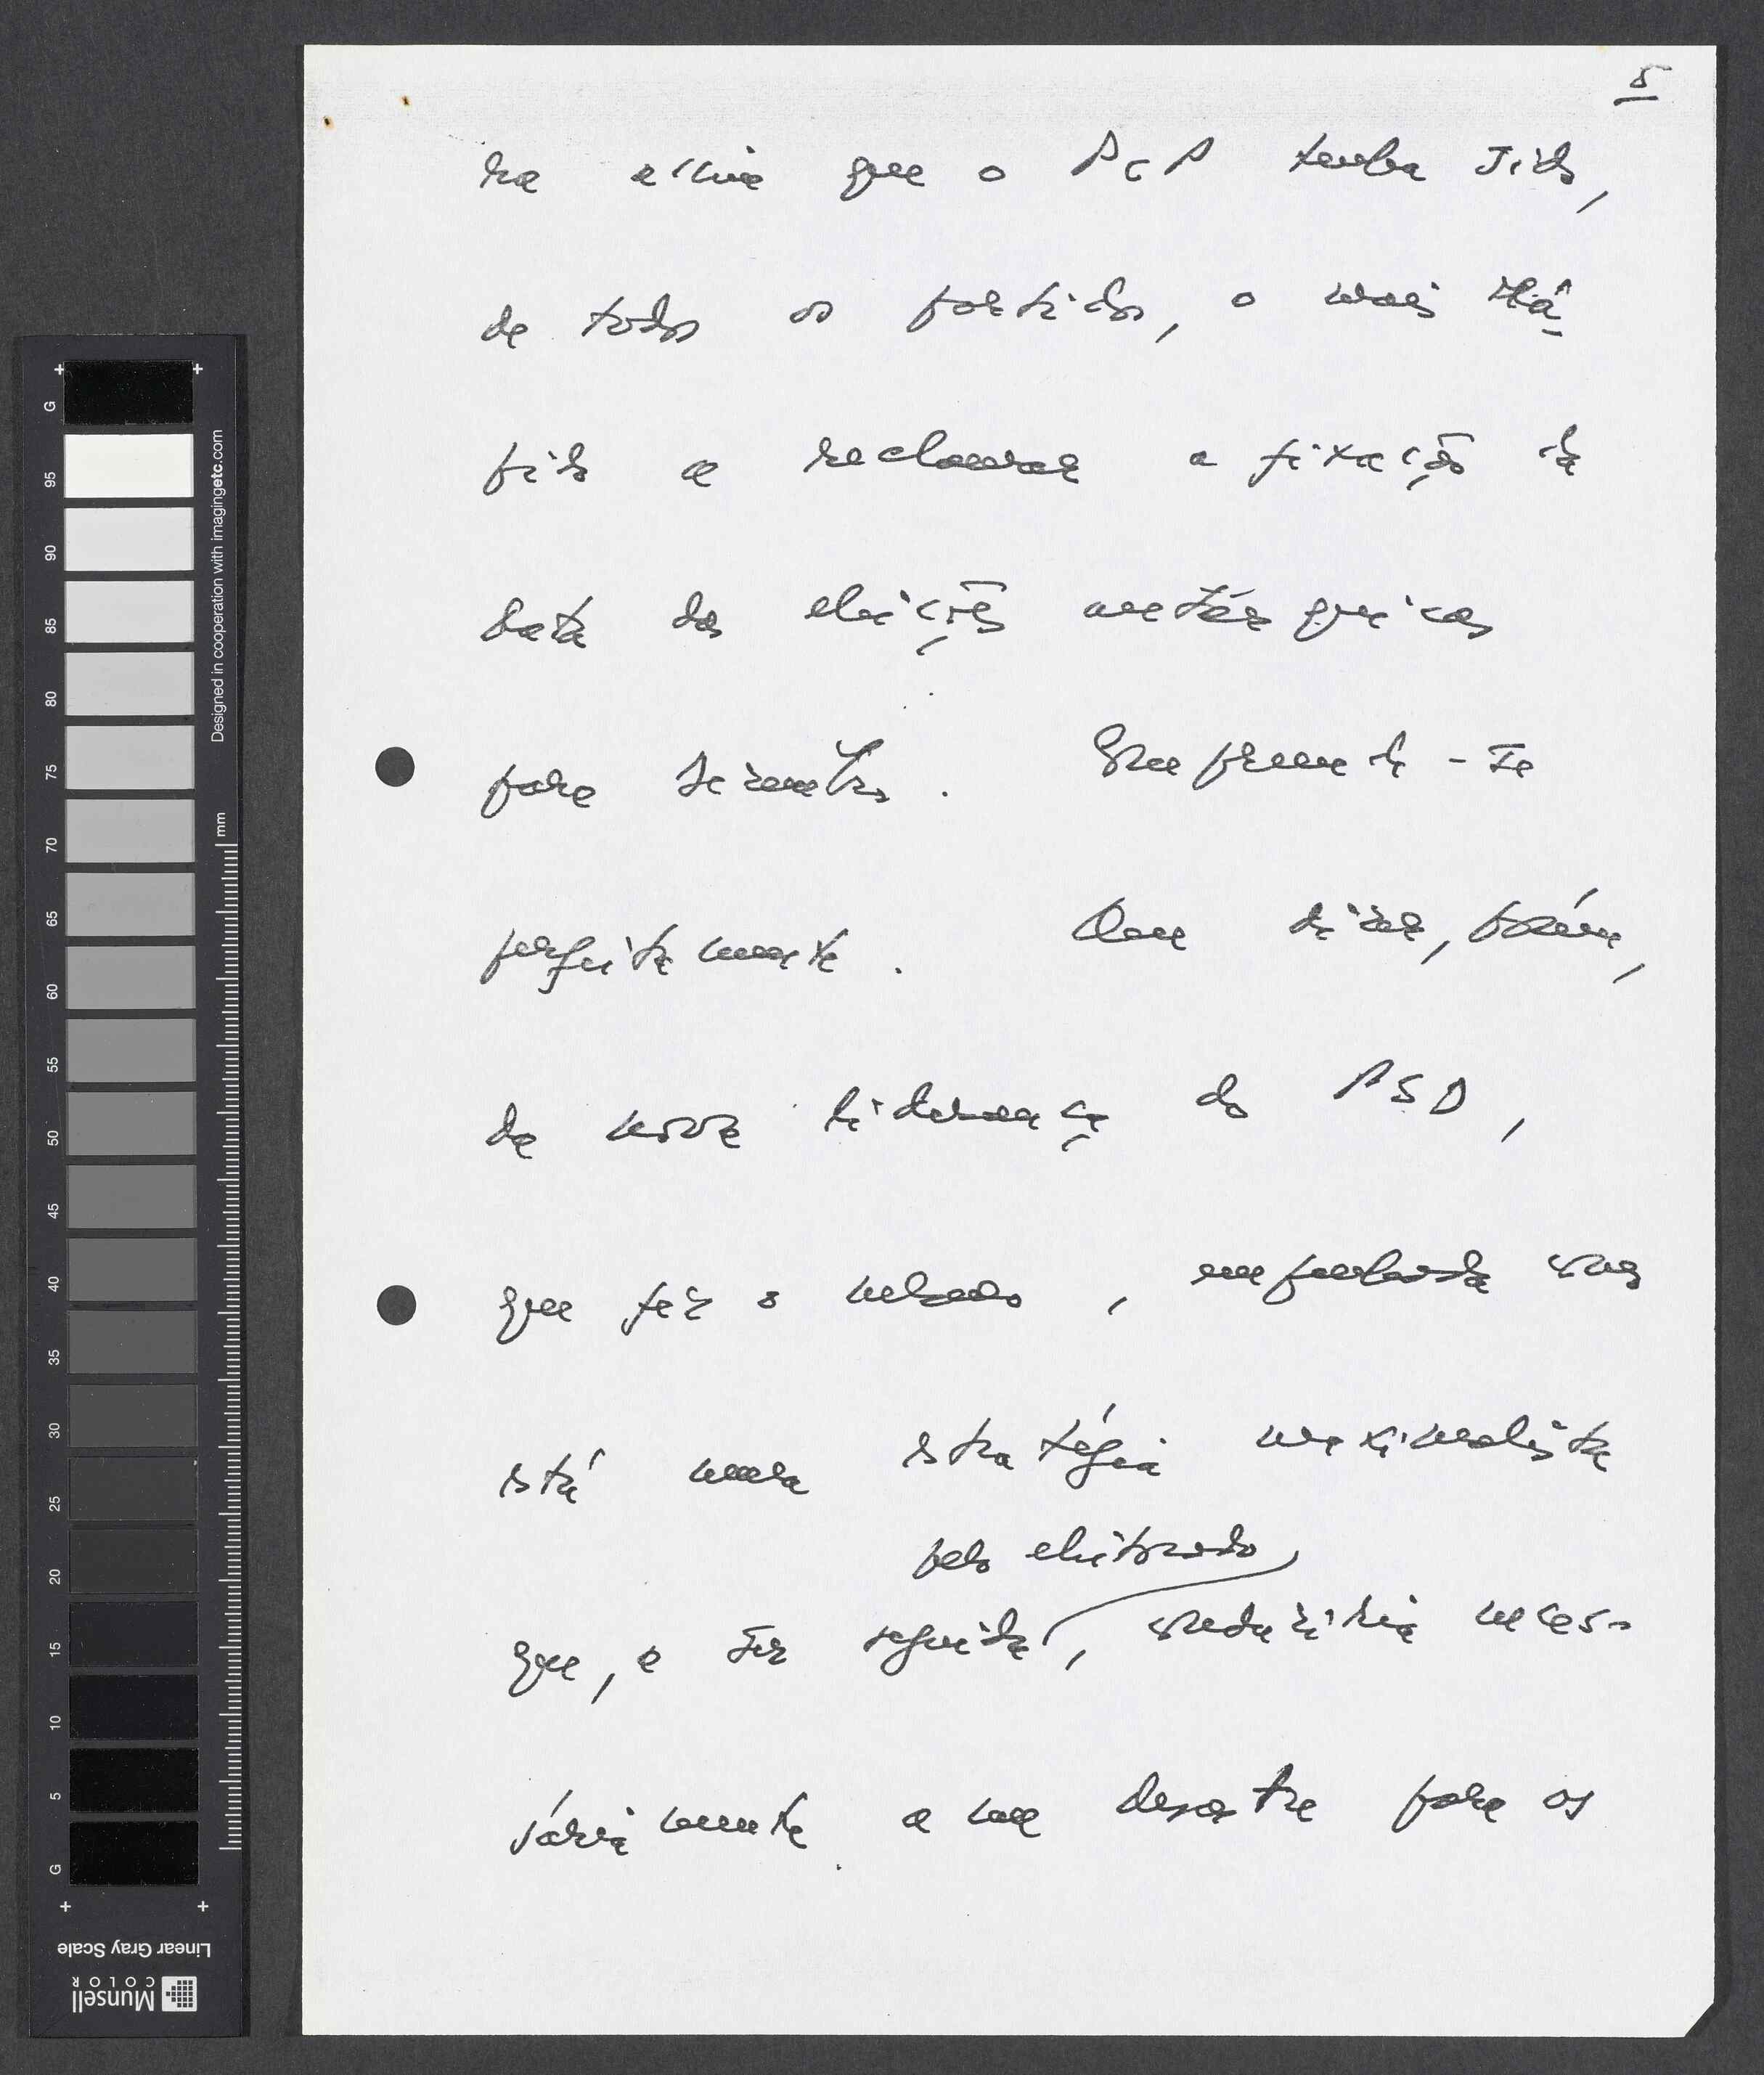 5
ra
que o PCP tenha sido,
de todos os partidos, o mais rá-
pido a reclamar a fixação da
data das eleições autárquicas
para Dezembro. Compreende-se
perfeitamente. Que dizer, porém,
da nova liderança do PSD,
que fez o mesmo, empenhada que
está numa estratégia maximalista
pelo eleitorado
que, a ser seguida, conduziria neces-
sáriamente a um desastre para os
G
95
90
85
80
75
70
65
60
55
50
45
40
35
30
25
20
15
10
5
G
mm
Designed in cooperation with imagingetc.com
Linear Gray Scale
Munsell
COLOR